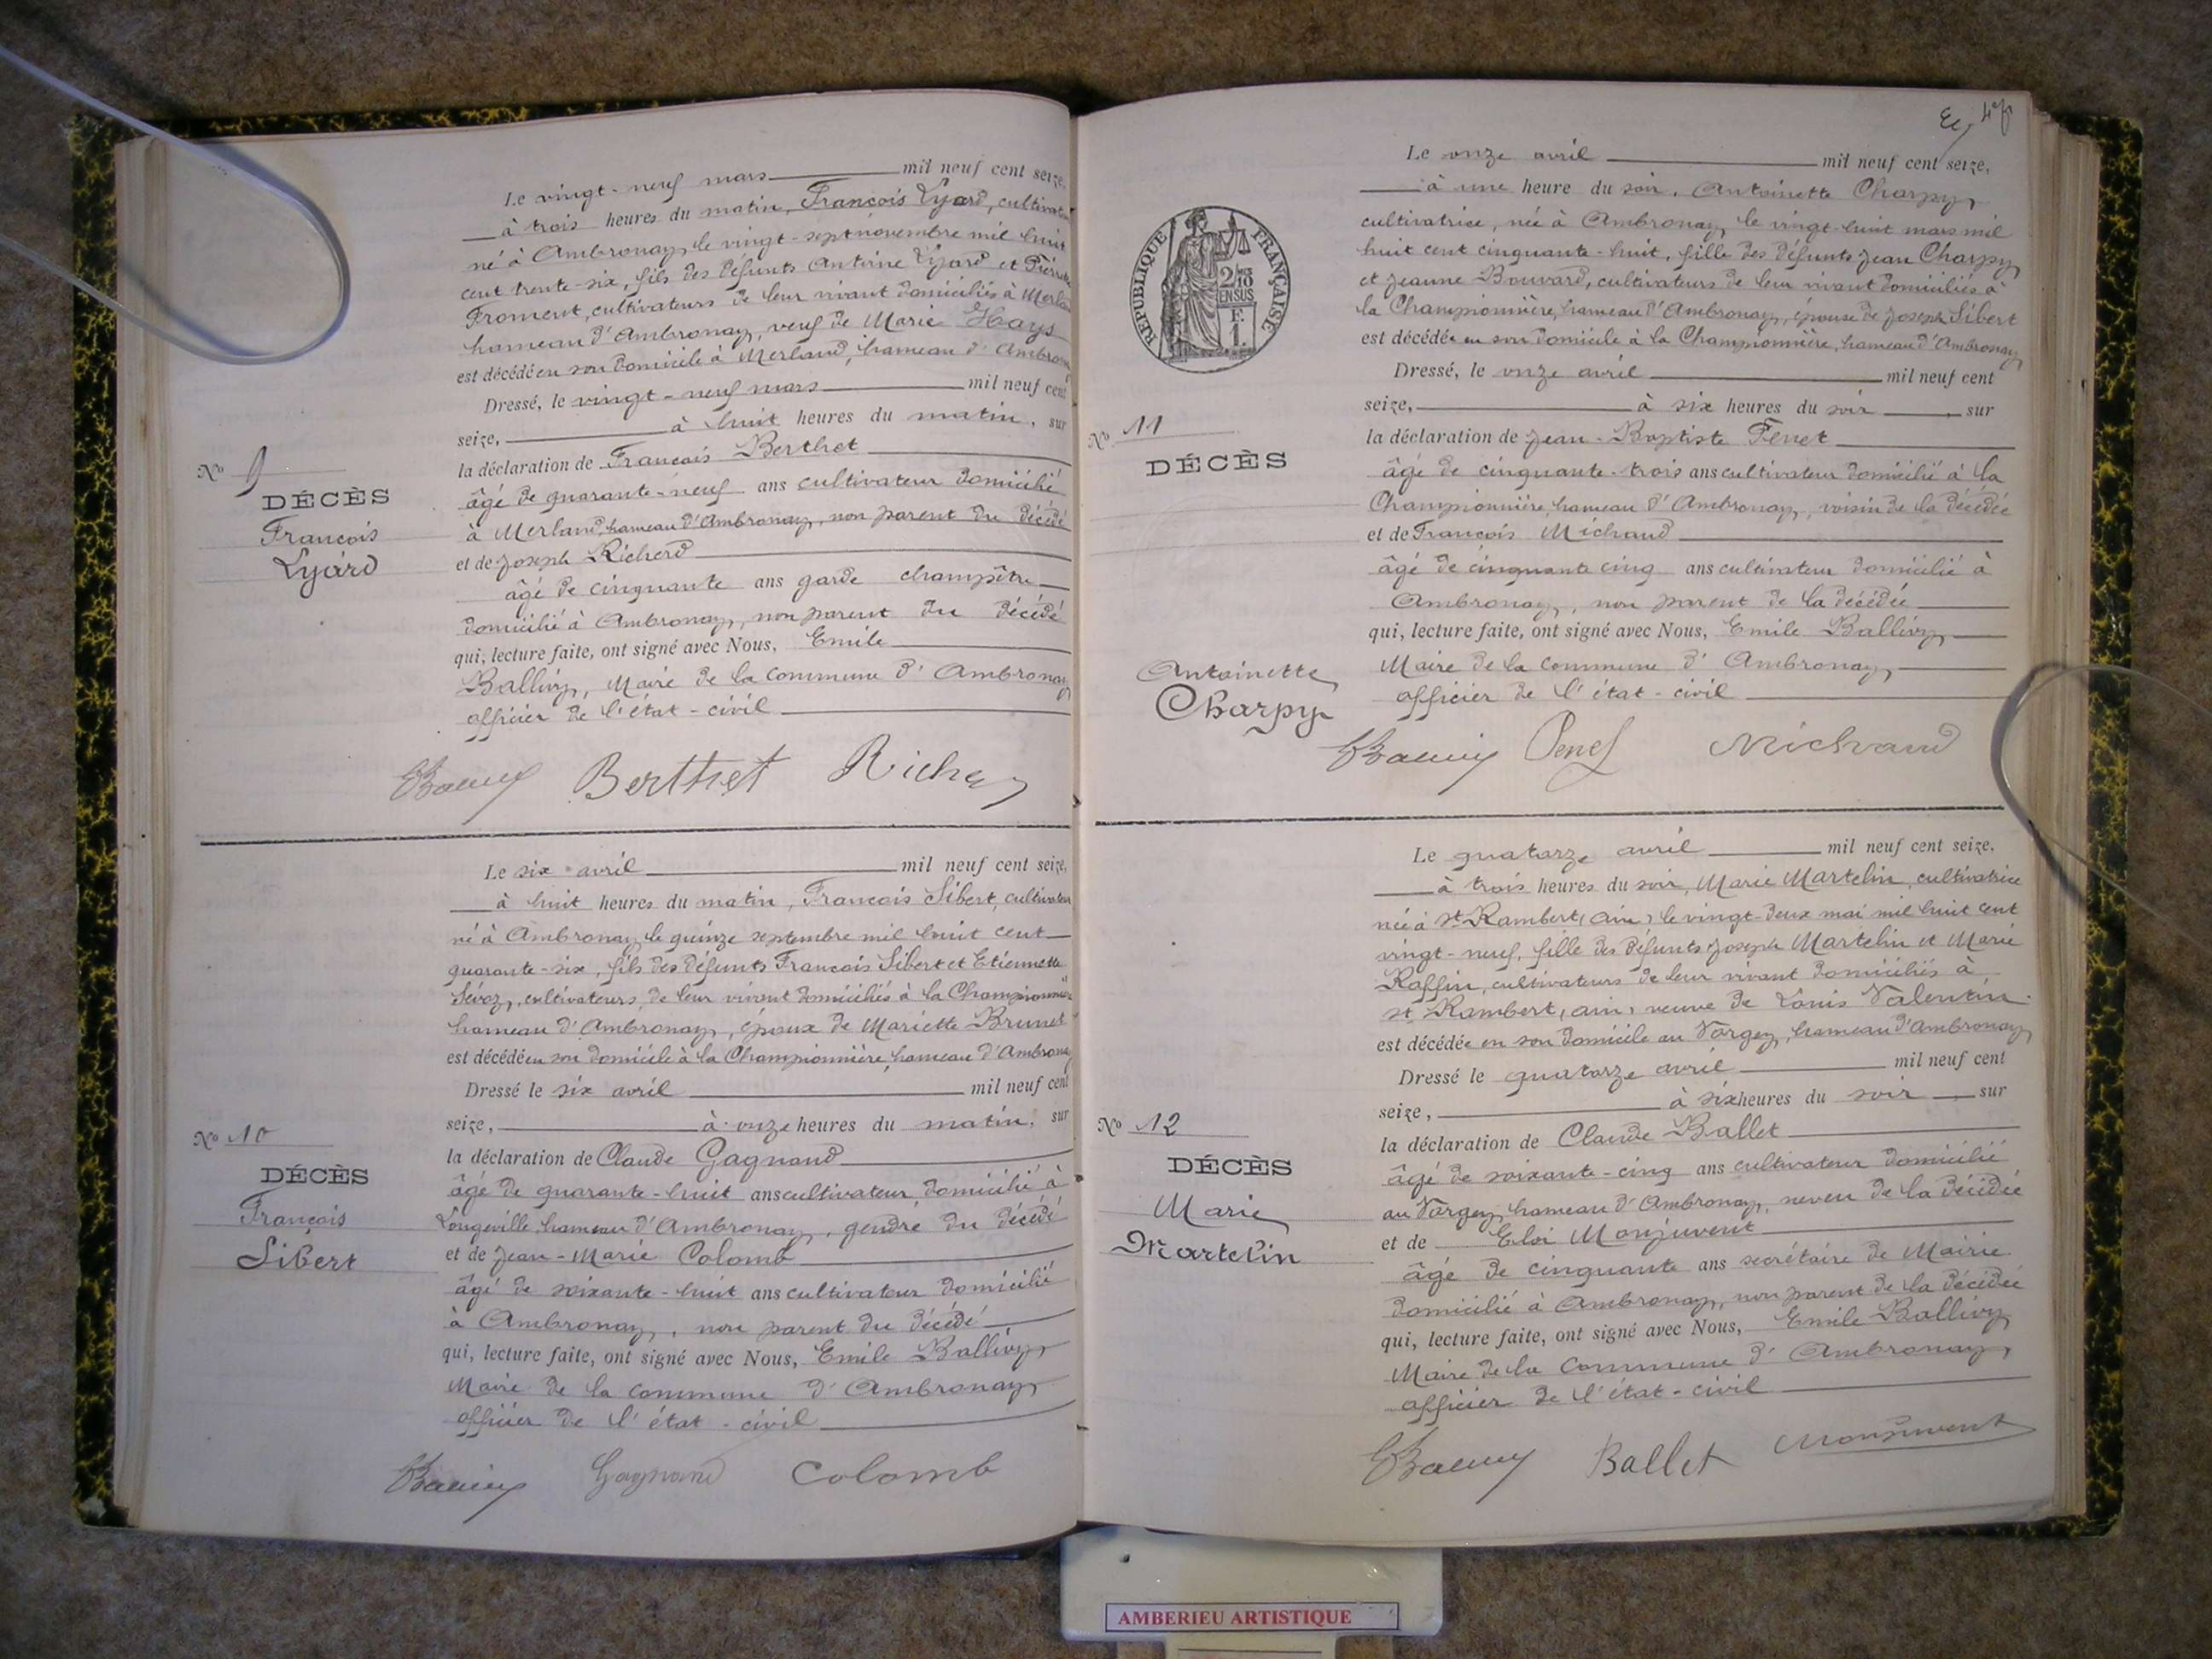 Le vingt-neuf mars mil neuf cent seize,
à trois heures du matin, François Lyard, cultivateur
né à Ambronay, le vingt-sept novembre mil huit
cent trente-six, fils des défunts Antoine Lyard et Pierrette
Froment, cultivateurs de leur vivant domiciliés à Merland
hameau d'Ambronay, veuf de Marie Hays
est décédé en son domicile à Merland, hameau d'Ambronay
Dressé, le vingt-neuf mars mil neuf cent
seize, à huit heures du matin, sur
la déclaration de François Berthet
âgé de quarante-neuf ans cultivateur domicilié
à Merland, hameau d'Ambronay, non parent du décédé
et de Joseph Richerd
âgé de cinquante ans garde champêtre
domicilié à Ambronay, non parent du décédé
qui, lecture faite, ont signé avec Nous, Emile
Ballivy, Maire de la commune d'Ambronay
officier de l'état-civil
Berthet
No 9
DÉCÈS
François
Lyard
Le six avril mil neuf cent seize,
à huit heures du matin, François Sibert, cultivateur
né à Ambronay, le quinze septembre mil huit cent
quarante-six, fils des défunts François Sibert et Etiennette
Sévoz, cultivateurs de leur vivant domiciliés à la Championnière
hameau d'Ambronay, époux de Mariette Brunet
est décédé en son domicile à la Championnière, hameau d'Ambronay
Dressé le six avril mil neuf cent
seize, à onze heures du matin, sur
la déclaration de Claude Gagnand
âgé de quarante-huit ans cultivateur domicilié à
Longeville, hameau d'Ambronay, gendre du décédé
et de Jean-Marie Colomb
âgé de soixante-huit ans cultivateur domicilié
à Ambronay, non parent du décédé
qui, lecture faite, ont signé avec Nous, Emile Ballivy,
Maire de la commune d'Ambronay
officier de l'état-civil
Gagnand Colomb
No 10
DÉCÈS
François
Sibert
Le onze avril mil neuf cent seize,
à une heure du soir, Antoinette Charpy,
cultivatrice, née à Ambronay, le vingt-huit mars mil
huit cent cinquante-huit, fille des défunts Jean Charpy
et Jeanne Bouvard, cultivateurs de leur vivant domiciliés à
la Championnière, hameau d'Ambronay, épouse de Joseph Sibert
est décédée en son domicile à la Championnière, hameau d'Ambronay
Dressé, le onze avril mil neuf cent
seize, à six heures du soir, sur
la déclaration de Jean-Baptiste
âgé de cinquante-trois ans cultivateur domicilié à la
Championnière, hameau d'Ambronay, voisin de la décédée
et de François Michaud
âgé de cinquante cinq ans cultivateur domicilié à
Ambronay, non parent de la décédée
qui, lecture faite, ont signé avec Nous, Emile Ballivy,
Maire de la commune d'Ambronay,
officier de l'état-civil
Michaud
RÉPUBLIQUE FRANÇAISE
2/10
EN SUS
F.
1.
No 11
DÉCÈS
Antoinette
Charpy
Le quatorze avril mil neuf cent seize,
à trois heures du soir, Marie Martelin, cultivatrice
née à St Rambert, (ain) le vingt-deux mai mil huit cent
vingt-neuf, fille des défunts Joseph Martelin et Marie
Raffin, cultivateurs de leur vivant domiciliés à
St Rambert, (ain) veuve de Louis Valentin
est décédée en son domicile au Vorgey, hameau d'Ambronay
Dressé le quatorze avril mil neuf cent
seize, à six heures du soir, sur
la déclaration de Claude Ballet
âgé de soixante-cinq ans cultivateur domicilié
au Vorgey, hameau d'Ambronay, neveu de la décédée
et de Eloi Monjuvent
âgé de cinquante ans secrétaire de Mairie
domicilié à Ambronay, non parent de la décédée
qui, lecture faite, ont signé avec Nous, Emile Ballivy
Maire de la Commune d'Ambronay,
officier de l'état-civil
Ballet Monjuvent
No 12
DÉCÈS
Marie
Martelin
AMBERIEU ARTISTIQUE